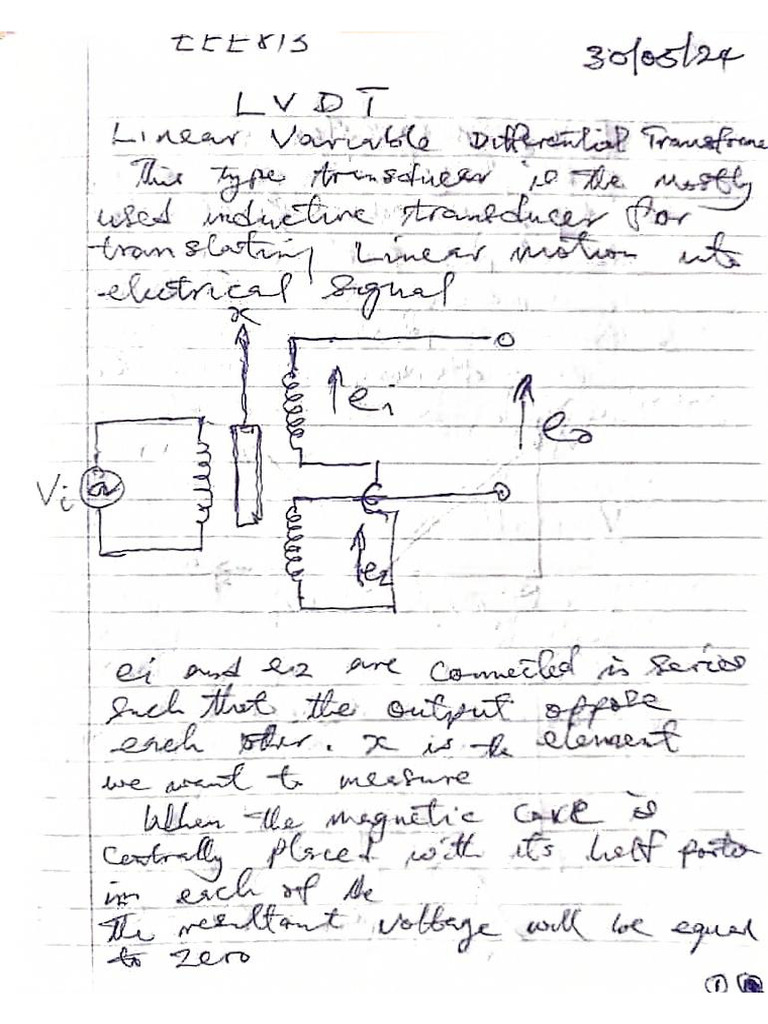 EEE 813
30/05/24
LVDT
Linear Variable Differential Transforme
This type transducer is the mostly
used inductive transducer for
translating Linear motion into
electrical signal
x
ei
eo
Vi
e2
ei and e2 are connected in series
such that the output oppose
each other. x is the element
we want to measure
When the magnetic core is
Centrally placed with its half portion
in each of the
The resultant voltage will be equal
to zero
1